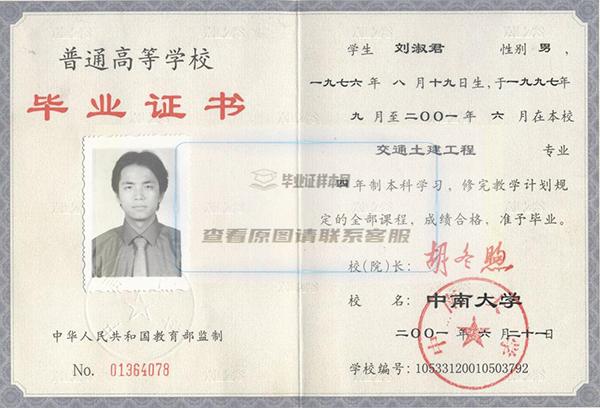 普通高等学校
毕业证书
中华人民共和国教育部监制
No. 01364078
学生 刘淑君 性别 男，
一九七六年 八 月 十九 日生，于一九九七年
九 月至二〇〇一年 六 月在本校
交通土建工程 专业
四 年制本科学习，修完教学计划规
定的全部课程，成绩合格，准予毕业。
校(院)长：胡冬煦
校 名：中南大学
二〇〇一 年 六 月二十一日
学校编号：10533120010503792
毕业证样本网
查看原图请联系客服